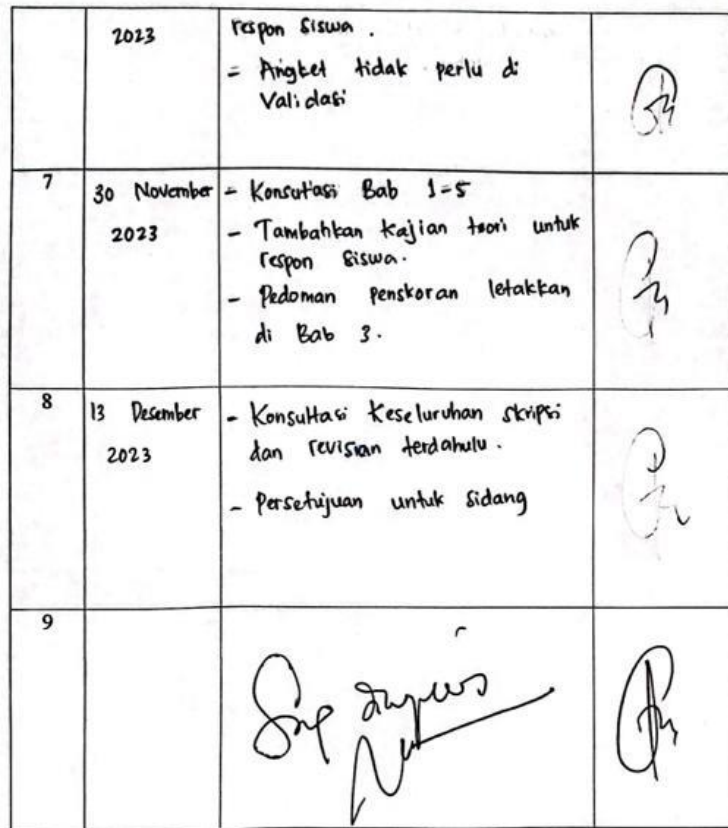 2023
respon siswa.
= Angket tidak perlu di
Validasi
7
30 November
2023
- Konsultasi Bab 1-5
- Tambahkan kajian teori untuk
respon siswa.
- Pedoman penskoran letakkan
di Bab 3.
8
13 Desember
2023
- Konsultasi Keseluruhan skripsi
dan revisian terdahulu.
- Persetujuan untuk Sidang
9